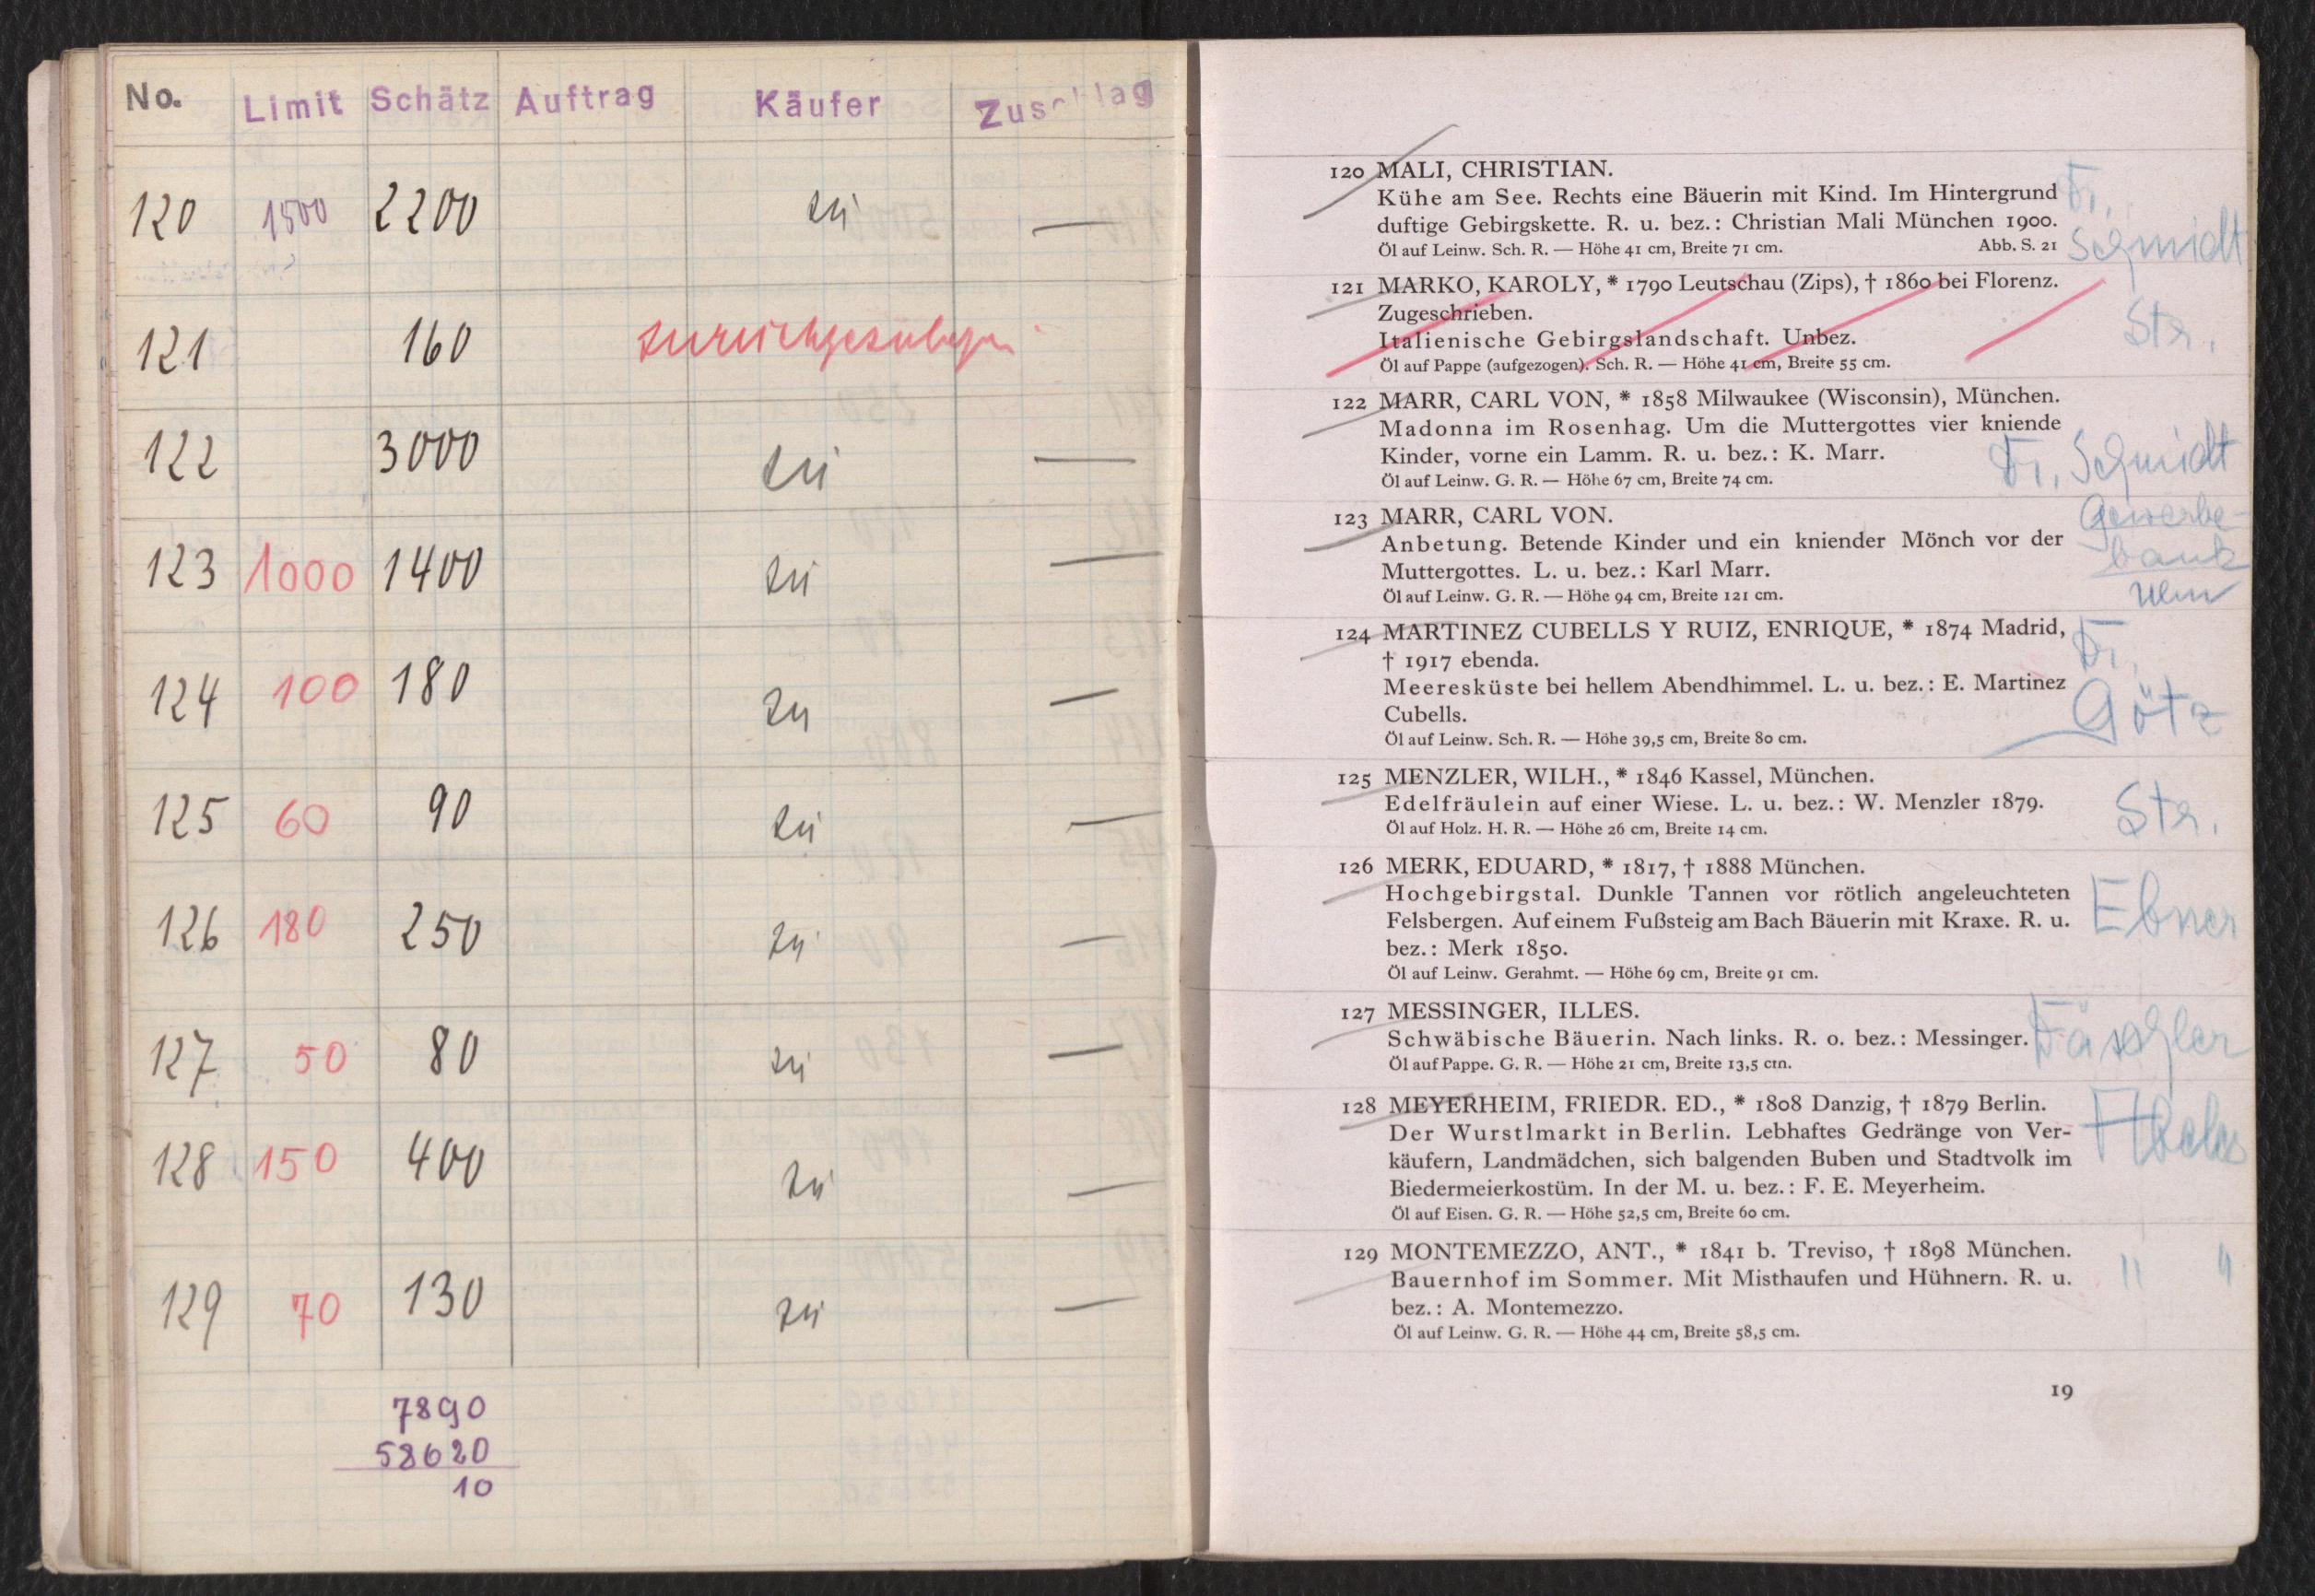 No. Limit Schätz Auftrag Käufer Zuschlag
120 1500 2200 zu —
121 160 zurückgezogen
122 3000 zu —
123 1000 1400 zu —
124 100 180 zu —
125 60 90 zu —
126 180 250 zu —
127 50 80 zu —
128 150 400 zu —
129 70 130 zu —
7890
58620
10
120 MALI, CHRISTIAN.
Kühe am See. Rechts eine Bäuerin mit Kind. Im Hintergrund
duftige Gebirgskette. R. u. bez.: Christian Mali München 1900.
Öl auf Leinw. Sch. R. — Höhe 41 cm, Breite 71 cm. Abb. S. 21
Schmidt
121 MARKO, KAROLY, * 1790 Leutschau (Zips), † 1860 bei Florenz.
Zugeschrieben.
Italienische Gebirgslandschaft. Unbez.
Öl auf Pappe (aufgezogen). Sch. R. — Höhe 41 cm, Breite 55 cm.
Str.
122 MARR, CARL VON, * 1858 Milwaukee (Wisconsin), München.
Madonna im Rosenhag. Um die Muttergottes vier kniende
Kinder, vorne ein Lamm. R. u. bez.: K. Marr.
Öl auf Leinw. G. R. — Höhe 67 cm, Breite 74 cm.
Schmidt
123 MARR, CARL VON.
Anbetung. Betende Kinder und ein kniender Mönch vor der
Muttergottes. L. u. bez.: Karl Marr.
Öl auf Leinw. G. R. — Höhe 94 cm, Breite 121 cm.
Gewerbe-
bank
Ulm
124 MARTINEZ CUBELLS Y RUIZ, ENRIQUE, * 1874 Madrid,
† 1917 ebenda.
Meeresküste bei hellem Abendhimmel. L. u. bez.: E. Martinez
Cubells.
Öl auf Leinw. Sch. R. — Höhe 39,5 cm, Breite 80 cm.
Götz
125 MENZLER, WILH., * 1846 Kassel, München.
Edelfräulein auf einer Wiese. L. u. bez.: W. Menzler 1879.
Öl auf Holz. H. R. — Höhe 26 cm, Breite 14 cm.
Str.
126 MERK, EDUARD, * 1817, † 1888 München.
Hochgebirgstal. Dunkle Tannen vor rötlich angeleuchteten
Felsbergen. Auf einem Fußsteig am Bach Bäuerin mit Kraxe. R. u.
bez.: Merk 1850.
Öl auf Leinw. Gerahmt. — Höhe 69 cm, Breite 91 cm.
Ebner
127 MESSINGER, ILLES.
Schwäbische Bäuerin. Nach links. R. o. bez.: Messinger.
Öl auf Pappe. G. R. — Höhe 21 cm, Breite 13,5 cm.
128 MEYERHEIM, FRIEDR. ED., * 1808 Danzig, † 1879 Berlin.
Der Wurstlmarkt in Berlin. Lebhaftes Gedränge von Ver-
käufern, Landmädchen, sich balgenden Buben und Stadtvolk im
Biedermeierkostüm. In der M. u. bez.: F. E. Meyerheim.
Öl auf Eisen. G. R. — Höhe 52,5 cm, Breite 60 cm.
129 MONTEMEZZO, ANT., * 1841 b. Treviso, † 1898 München.
Bauernhof im Sommer. Mit Misthaufen und Hühnern. R. u.
bez.: A. Montemezzo.
Öl auf Leinw. G. R. — Höhe 44 cm, Breite 58,5 cm.
" "
19